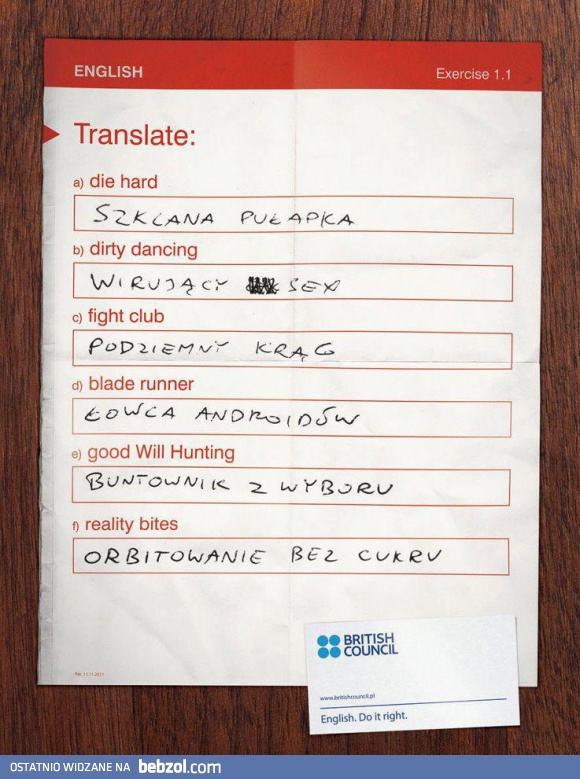 ENGLISH
Exercise 1.1
Translate:
a) die hard
SZKLANA PUŁAPKA
b) dirty dancing
WIRUJĄCY SEX
c) fight club
PODZIEMNY KRĄG
d) blade runner
ŁOWCA ANDROIDÓW
e) good Will Hunting
BUNTOWNIK Z WYBORU
f) reality bites
ORBITOWANIE BEZ CUKRU
BRITISH
COUNCIL
www.britishcouncil.pl
English. Do it right.
OSTATNIO WIDZIANE NA bebzol.com